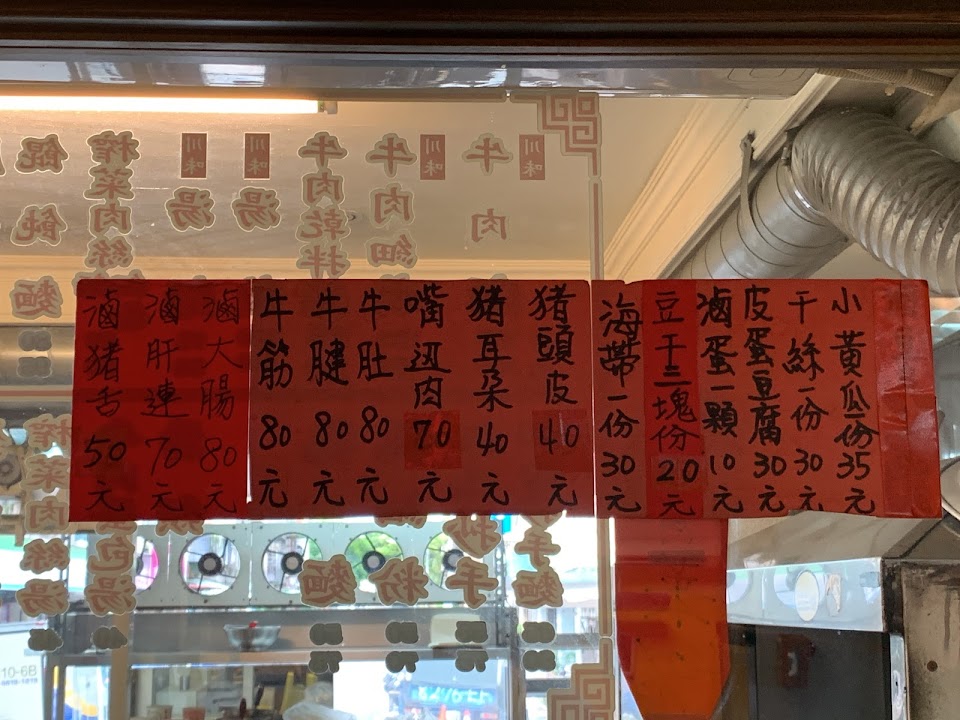 小黃瓜一份35元
干絲一份30元
皮蛋豆腐30元
滷蛋一顆10元
豆干三塊份20元
海帶一份30元
豬頭皮40元
豬耳朵40元
嘴边肉70元
牛肚80元
牛腱80元
牛筋80元
滷大腸80元
滷肝連70元
滷猪舌50元
川味
牛肉
川味
牛肉細
牛肉乾拌
川味
湯
川味
湯
榨菜肉絲
餛飩麵
手麵
抄手
粉
麵
包湯
榨菜肉絲湯
10-6B